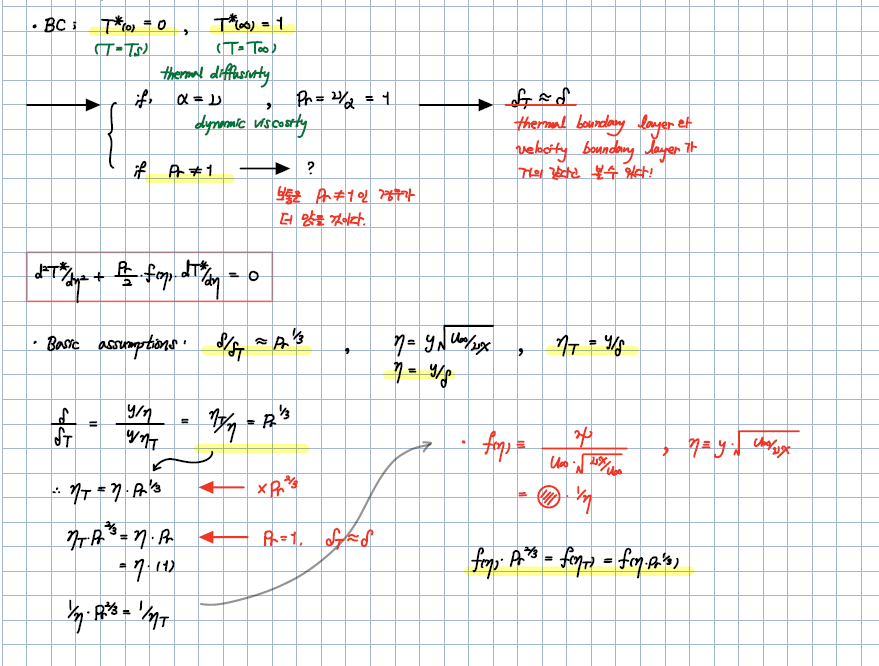 · BC ; T*(0) = 0 , T*(∞) = 1
(T=Ts) (T=T∞)
thermal diffusivity
if, α = ν , Pr = ν/α = 1 → δT ≈ δ
dynamic viscosity
thermal boundary layer 와
velocity boundary layer 가
거의 같다고 볼 수 있다!
if Pr ≠ 1 → ?
보통은 Pr ≠ 1 인 경우가
더 많을 것이다.
d²T*/dη² + Pr/2 · f(η) · dT*/dη = 0
· Basic assumptions · δ/δT ≈ Pr^1/3 , η = y√(U∞/νx) , ηT = y/δ
η = y/δ
δ/δT = (y/η)/(y/ηT) = ηT/η = Pr^1/3
∴ ηT = η · Pr^1/3 ← × Pr^2/3
ηT · Pr^2/3 = η · Pr ← Pr = 1, δT ≈ δ
= η · (1)
1/η · Pr^2/3 = 1/ηT
· f(η) ≡ ψ/(U∞ · √(νx/U∞)) , η ≡ y · √(U∞/νx)
= · 1/η
f(η) · Pr^2/3 = f(ηT) = f(η · Pr^1/3)